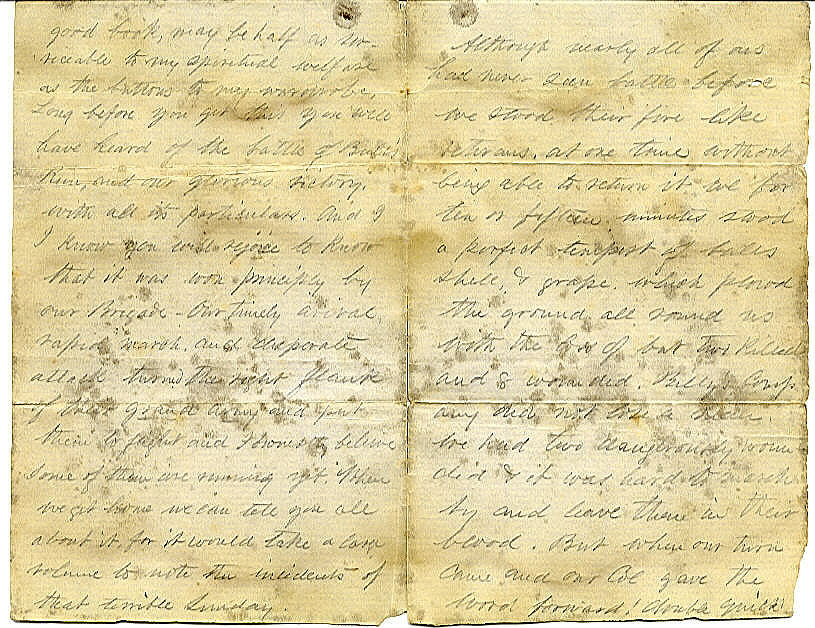 good book, may be half as ser-
viceable to my spiritual welfare
as the buttons to my wardrobe,
Long before you get this you will
have heard of the battle of Bull
Run, and our glorious victory.
with all its particulars. And I
I know you will rejoice to know
that it was won principly by
our Brigade - Our timely arival,
rapid march, and desperate
attack turned the right flank
of their grand army and put
them to flight and I honestly believe
some of them are running yet. When
we get home we can tell you all
about it, for it would take a large
volume to note the incidents of
that terrible Sunday.
Although nearly all of our
had never seen battle before
we stood their fire like
veterans, at one time without
being able to return it we for
ten or fifteen minutes stood
a perfect tempest of balls
shell, & grape, which plowed
the ground all round us
with the loss of but two killed
and 8 wounded. Billy's Comp
any did not lose a man
We had two dangerously woun
ded & it was hard to march
by and leave them in their
blood. But when our turn
came and our Col gave the
word forward! double quick!